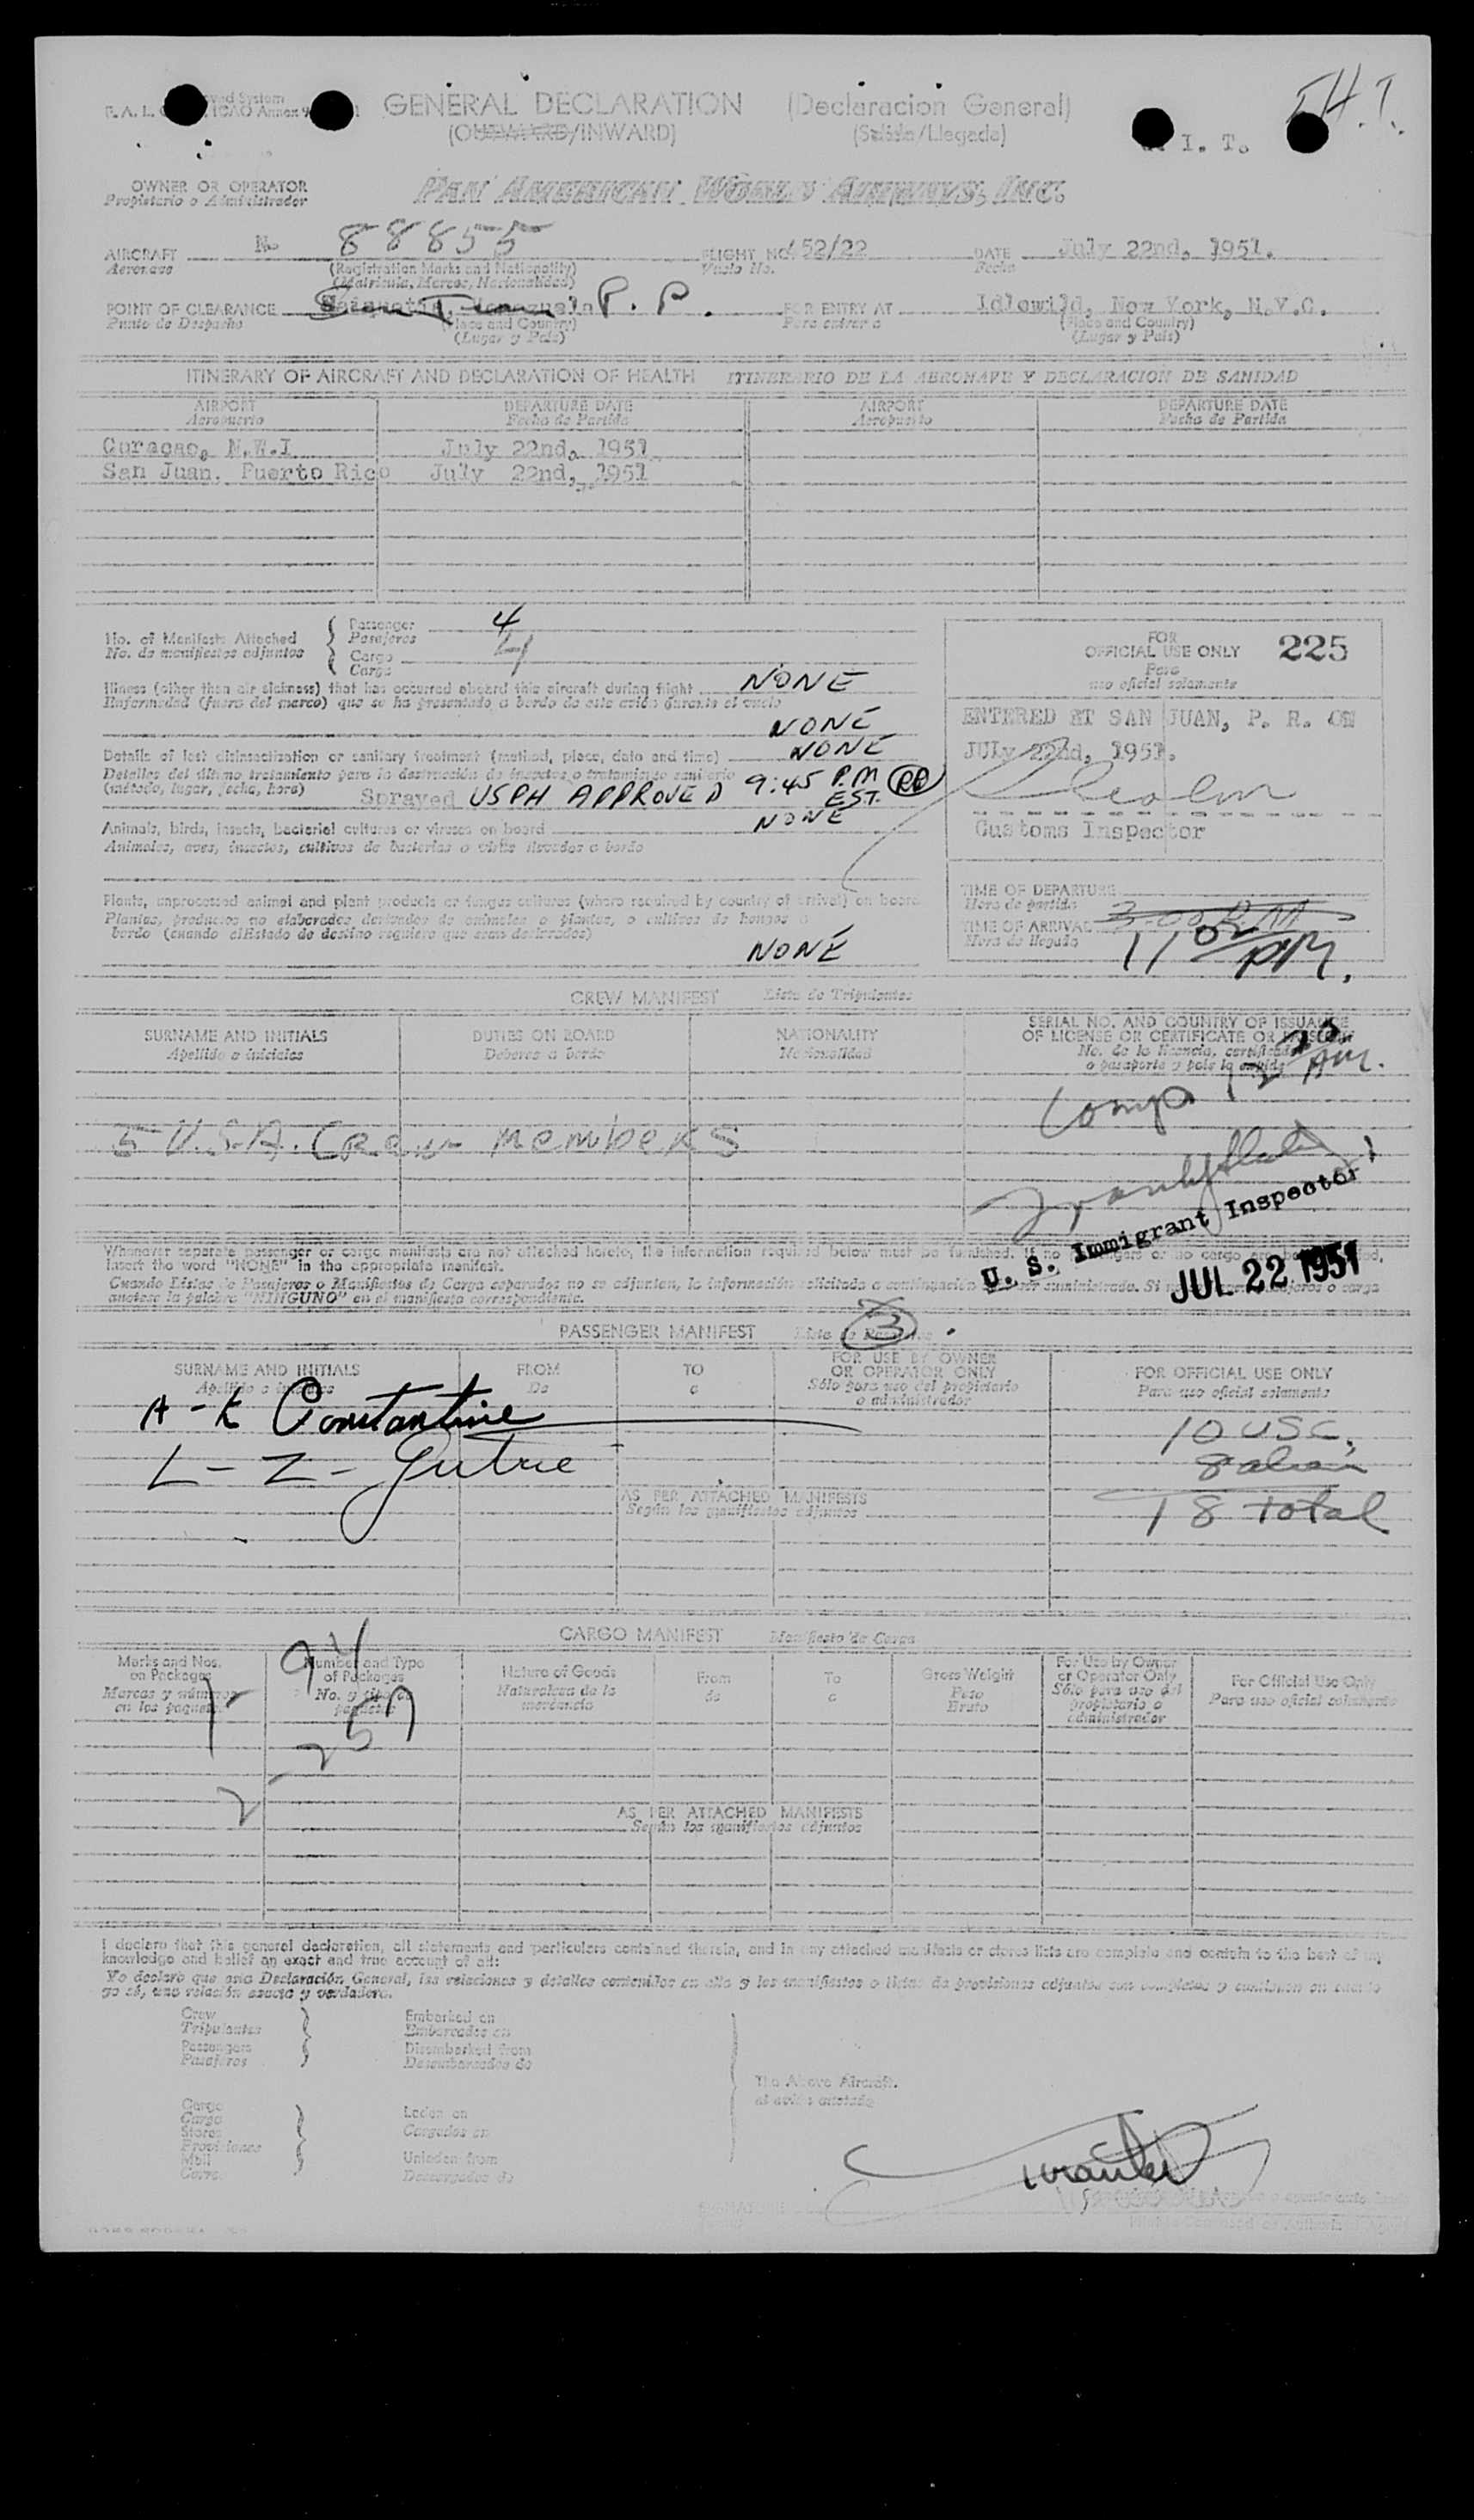 GENERAL DECLARATION (Declaracion General)
(OUTWARD/INWARD) (Salida/Llegada)
I. T.
OWNER OR OPERATOR
Propietario o Administrador
PAN AMERICAN WORLD AIRWAYS, INC.
AIRCRAFT No 88855 FLIGHT NO. 452/22 DATE July 22nd, 1951.
Aeronave (Registration Marks and Nationality) Vuelo No. Fecha
(Matricula, Marcas, Nacionalidad)
POINT OF CLEARANCE P. FOR ENTRY AT Idlewild, New York, N.Y.C.
Punto de Despacho (Place and Country) Para entrar a (Place and Country)
(Lugar y Pais) (Lugar y Pais)
ITINERARY OF AIRCRAFT AND DECLARATION OF HEALTH ITINERARIO DE LA AERONAVE Y DECLARACION DE SANIDAD
AIRPORT DEPARTURE DATE AIRPORT DEPARTURE DATE
Aeropuerto Fecha de Partida Aeropuerto Fecha de Partida
Curaçao, N.W.I July 22nd, 1951
San Juan. Puerto Rico July 22nd, 1951
No. of Manifests Attached Passenger 4
No. de manifiestos adjuntos Pasajeros
Cargo 4
Carga
FOR
OFFICIAL USE ONLY 225
Para
uso oficial solamente
Illness (other than air sickness) that has occurred aboard this aircraft during flight NONE
Enfermedad (fuera del mareo) que se ha presentado a bordo de este avión durante el vuelo
NONE
ENTERED AT SAN JUAN, P. R. ON
JULy 22nd, 1951.
Customs Inspector
Details of last disinsectization or sanitary treatment (method, place, date and time) NONE
Detalles del último tratamiento para la destrucción de insectos o tratamiento sanitario
(método, lugar, fecha, hora) Sprayed USPH APPROVED 9:45 P.M EST.
Animals, birds, insects, bacterial cultures or viruses on board NONE
Animales, aves, insectos, cultivos de bacterias o virus llevados a bordo
Plants, unprocessed animal and plant products or fungus cultures (where required by country of arrival) on board
Plantas, productos no elaborados derivados de animales o plantas, o cultivos de hongos a
bordo (cuando el Estado de destino requiera que sean declarados)
NONE
TIME OF DEPARTURE
Hora de partida
TIME OF ARRIVAL 3-00 PM
Hora de llegada 11 02 PM.
CREW MANIFEST Lista de Tripulantes
SURNAME AND INITIALS DUTIES ON BOARD NATIONALITY SERIAL NO. AND COUNTRY OF ISSUANCE
OF LICENSE OR CERTIFICATE OR PASSPORT
Apellido e iniciales Deberes a bordo Nacionalidad No. de la licencia, certificado
o pasaporte y pais lo expide
5 U.S.A. CRew MembeRS
U. S. Immigrant Inspector
JUL 22 1951
Whenever separate passenger or cargo manifests are not attached hereto, the information required below must be furnished. If no
insert the word "NONE" in the appropriate manifest.
Cuando Listas de Pasajeros o Manifiestos de Carga separados no se adjunten, la información solicitada a continuación suministrada. Si
anotese la palabra "NINGUNO" en el manifiesto correspondiente.
PASSENGER MANIFEST Lista de Pasajeros 3
SURNAME AND INITIALS FROM TO FOR USE BY OWNER
OR OPERATOR ONLY FOR OFFICIAL USE ONLY
Apellido e iniciales De a Sólo para uso del propietario
o administrador Para uso oficial solamente
A - K Constantine 10 USC,
L - Z - 8 alien
18 total
AS PER ATTACHED MANIFESTS
Según los manifiestos adjuntos
CARGO MANIFEST Manifiesto de Carga
Marks and Nos.
on Packages
Number and Type
of Packages
Nature of Goods
Naturaleza de la
mercancia
From
de
To
a
Gross Weight
Peso
Bruto
For Use by Owner
or Operator Only
Sólo para uso del
propietario o
administrador
For Official Use Only
Para uso oficial solamente
AS PER ATTACHED MANIFESTS
Según los manifiestos adjuntos
I declare that this general declaration, all statements and particulars contained therein, and in any attached manifests or stores lists are complete and contain to the best of my
knowledge and belief an exact and true account of all:
Yo declaro que esta Declaración General, las relaciones y detalles contenidos en ella y los manifiestos o listas de provisiones adjuntos son completos y contienen en cuanto
yo sé, una relación exacta y verdadera.
Crew Embarked on
Tripulantes Embarcados en
Passengers Disembarked from
Pasajeros Desembarcados de
The Above Aircraft.
el avión anotado
Cargo Laden on
Carga Cargados en
Stores
Provisiones
Mail Unladen from
Correo Descargados de